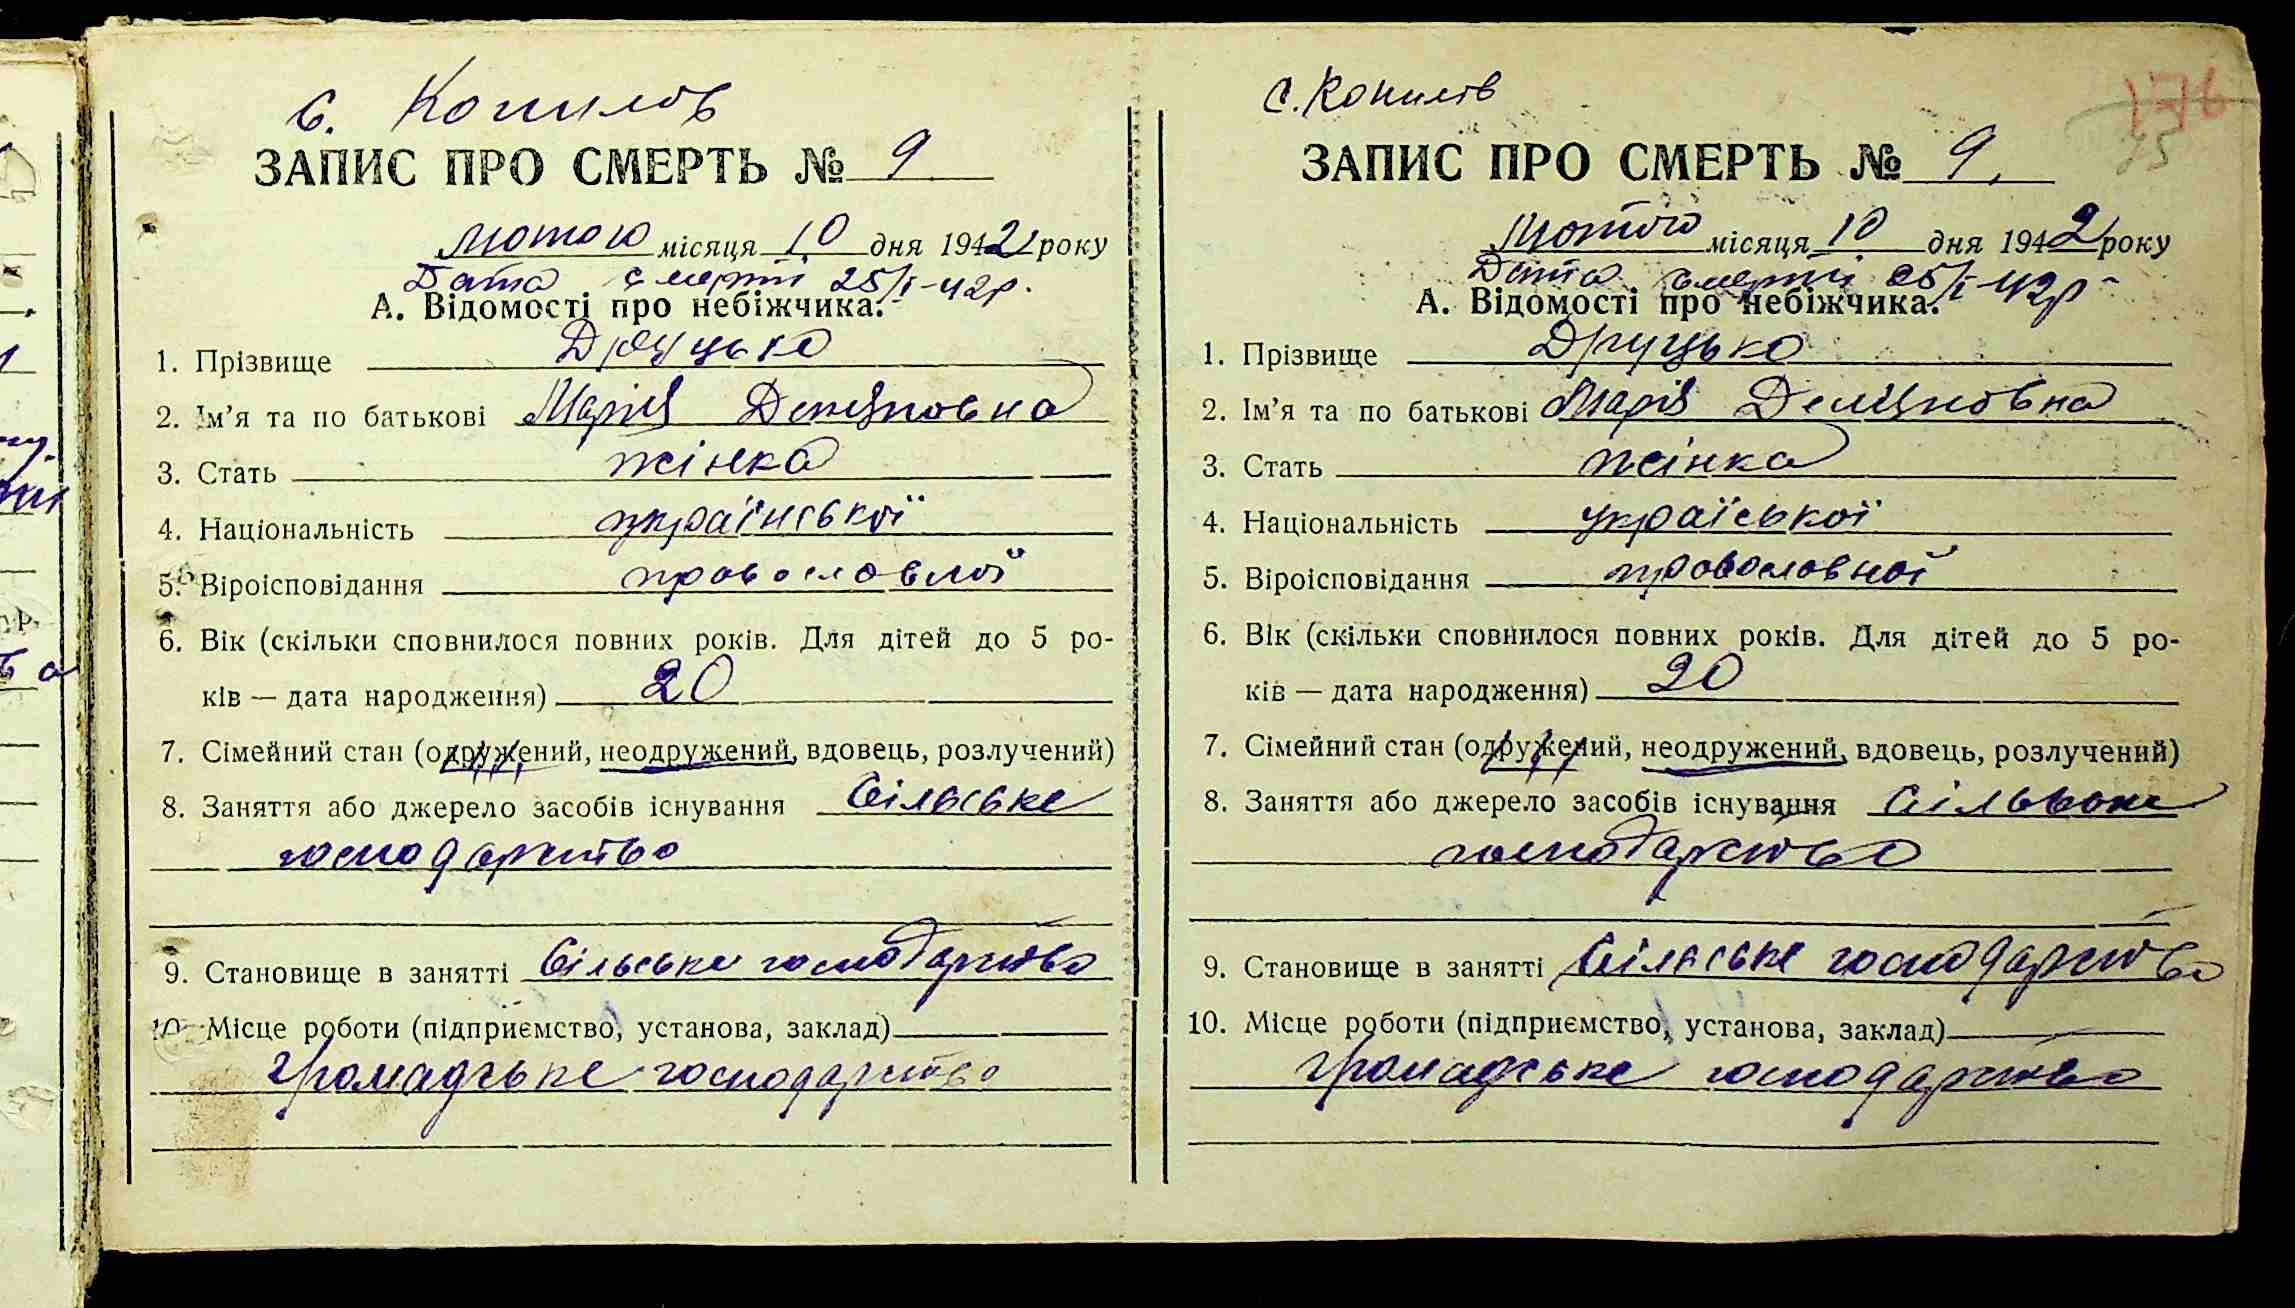 с. Копилов
ЗАПИС ПРО СМЕРТЬ № 9
лютого місяця 10 дня 1942 року
Дата смерти 25/I-42р.
А. Відомості про небіжчика.
1. Прізвище Друцько
2. Ім'я та по батькові Марія
3. Стать жінка
4. Національність української
5. Віроісповідання православної
6. Вік (скільки сповнилося повних років. Для дітей до 5 ро-
ків — дата народження) 20
7. Сімейний стан (одружений, неодружений, вдовець, розлучений)
8. Заняття або джерело засобів існування сільське
господарство
9. Становище в занятті сільське господарство
10. Місце роботи (підприємство, установа, заклад)
громадське господарство
с. Копилів
ЗАПИС ПРО СМЕРТЬ № 9.
176
35
лютого місяця 10 дня 1942 року
Дата смерті 25/I-42р
А. Відомості про небіжчика.
1. Прізвище Друцько
2. Ім'я та по батькові Марія
3. Стать жінка
4. Національність україської
5. Віроісповідання православної
6. Вік (скільки сповнилося повних років. Для дітей до 5 ро-
ків — дата народження) 20
7. Сімейний стан (одружений, неодружений, вдовець, розлучений)
8. Заняття або джерело засобів існування сільське
господарство
9. Становище в занятті сільське господарство
10. Місце роботи (підприємство, установа, заклад)
громадське господарство